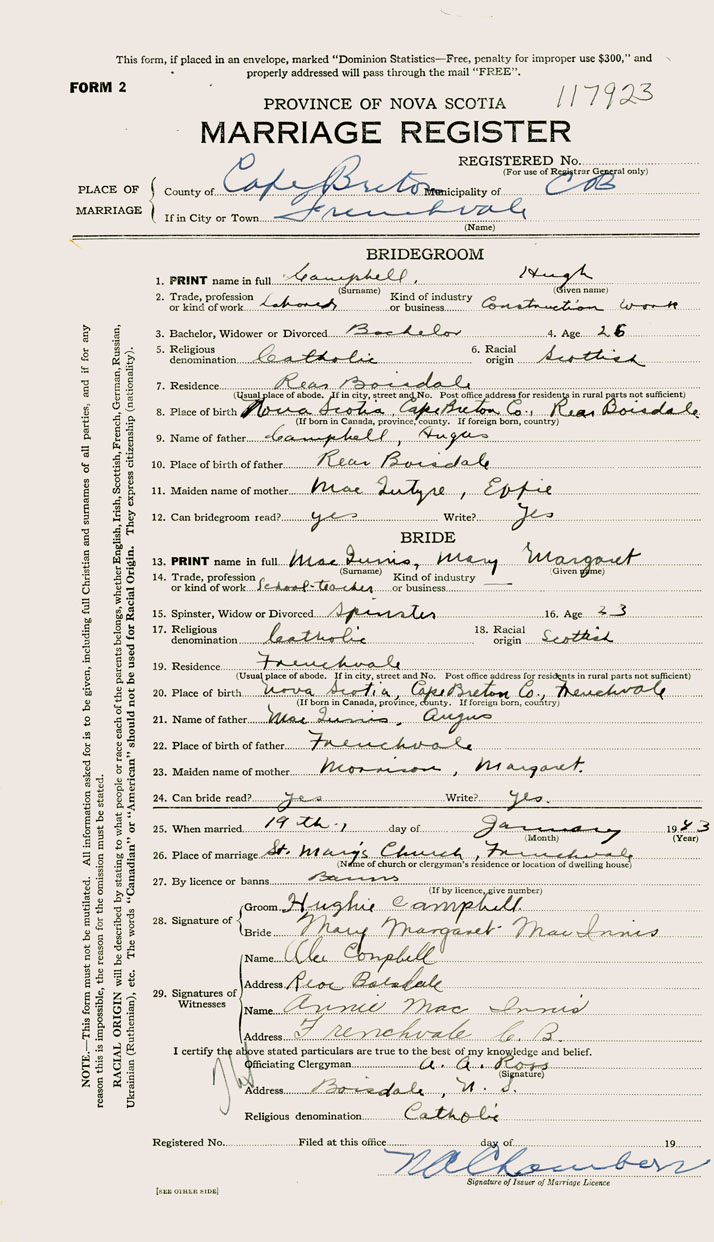 This form, if placed in an envelope, marked "Dominion Statistics—Free, penalty for improper use $300," and
properly addressed will pass through the mail "FREE".
FORM 2
117923
PROVINCE OF NOVA SCOTIA
MARRIAGE REGISTER
REGISTERED No.
(For use of Registrar General only)
PLACE OF MARRIAGE
County of Cape Breton Municipality of CB
If in City or Town Frenchvale
(Name)
BRIDEGROOM
1. PRINT name in full Campbell, Hugh
(Surname) (Given name)
2. Trade, profession or kind of work Laborer Kind of industry or business Construction work
3. Bachelor, Widower or Divorced Bachelor 4. Age 26
5. Religious denomination Catholic 6. Racial origin Scottish
7. Residence Rear Boisdale
(Usual place of abode. If in city, street and No. Post office address for residents in rural parts not sufficient)
8. Place of birth Nova Scotia, Cape Breton Co., Rear Boisdale
(If born in Canada, province, county. If foreign born, country)
9. Name of father Campbell, Angus
10. Place of birth of father Rear Boisdale
11. Maiden name of mother Mac Intyre, Effie
12. Can bridegroom read? yes Write? Yes
BRIDE
13. PRINT name in full Mac Innis, Mary Margaret
(Surname) (Given name)
14. Trade, profession or kind of work School-teacher Kind of industry or business —
15. Spinster, Widow or Divorced Spinster 16. Age 23
17. Religious denomination Catholic 18. Racial origin Scottish
19. Residence Frenchvale
(Usual place of abode. If in city, street and No. Post office address for residents in rural parts not sufficient)
20. Place of birth Nova Scotia, Cape Breton Co., Frenchvale
(If born in Canada, province, county. If foreign born, country)
21. Name of father Mac Innis, Angus
22. Place of birth of father Frenchvale
23. Maiden name of mother Morrison, Margaret.
24. Can bride read? yes Write? Yes.
25. When married 19th, day of January 1943
(Month) (Year)
26. Place of marriage St. Mary's Church, Frenchvale
(Name of church or clergyman's residence or location of dwelling house)
27. By licence or banns Banns
(If by licence, give number)
28. Signature of
Groom Hughie Campbell
Bride Mary Margaret MacInnis
29. Signatures of Witnesses
Name Alec Campbell
Address Rear Boisdale
Name Annie Mac Innis
Address Frenchvale C. B.
I certify the above stated particulars are true to the best of my knowledge and belief.
Officiating Clergyman A. A. Ross
(Signature)
Address Boisdale, N. S.
Religious denomination Catholic
Registered No. Filed at this office day of 19
Signature of Issuer of Marriage Licence
[SEE OTHER SIDE]
NOTE.—This form must not be mutilated. All information asked for is to be given, including full Christian and surnames of all parties, and if for any
reason this is impossible, the reason for the omission must be stated.
RACIAL ORIGIN will be described by stating to what people or race each of the parents belongs, whether English, Irish, Scottish, French, German, Russian,
Ukrainian (Ruthenian), etc. The words "Canadian" or "American" should not be used for Racial Origin. They express citizenship (nationality).